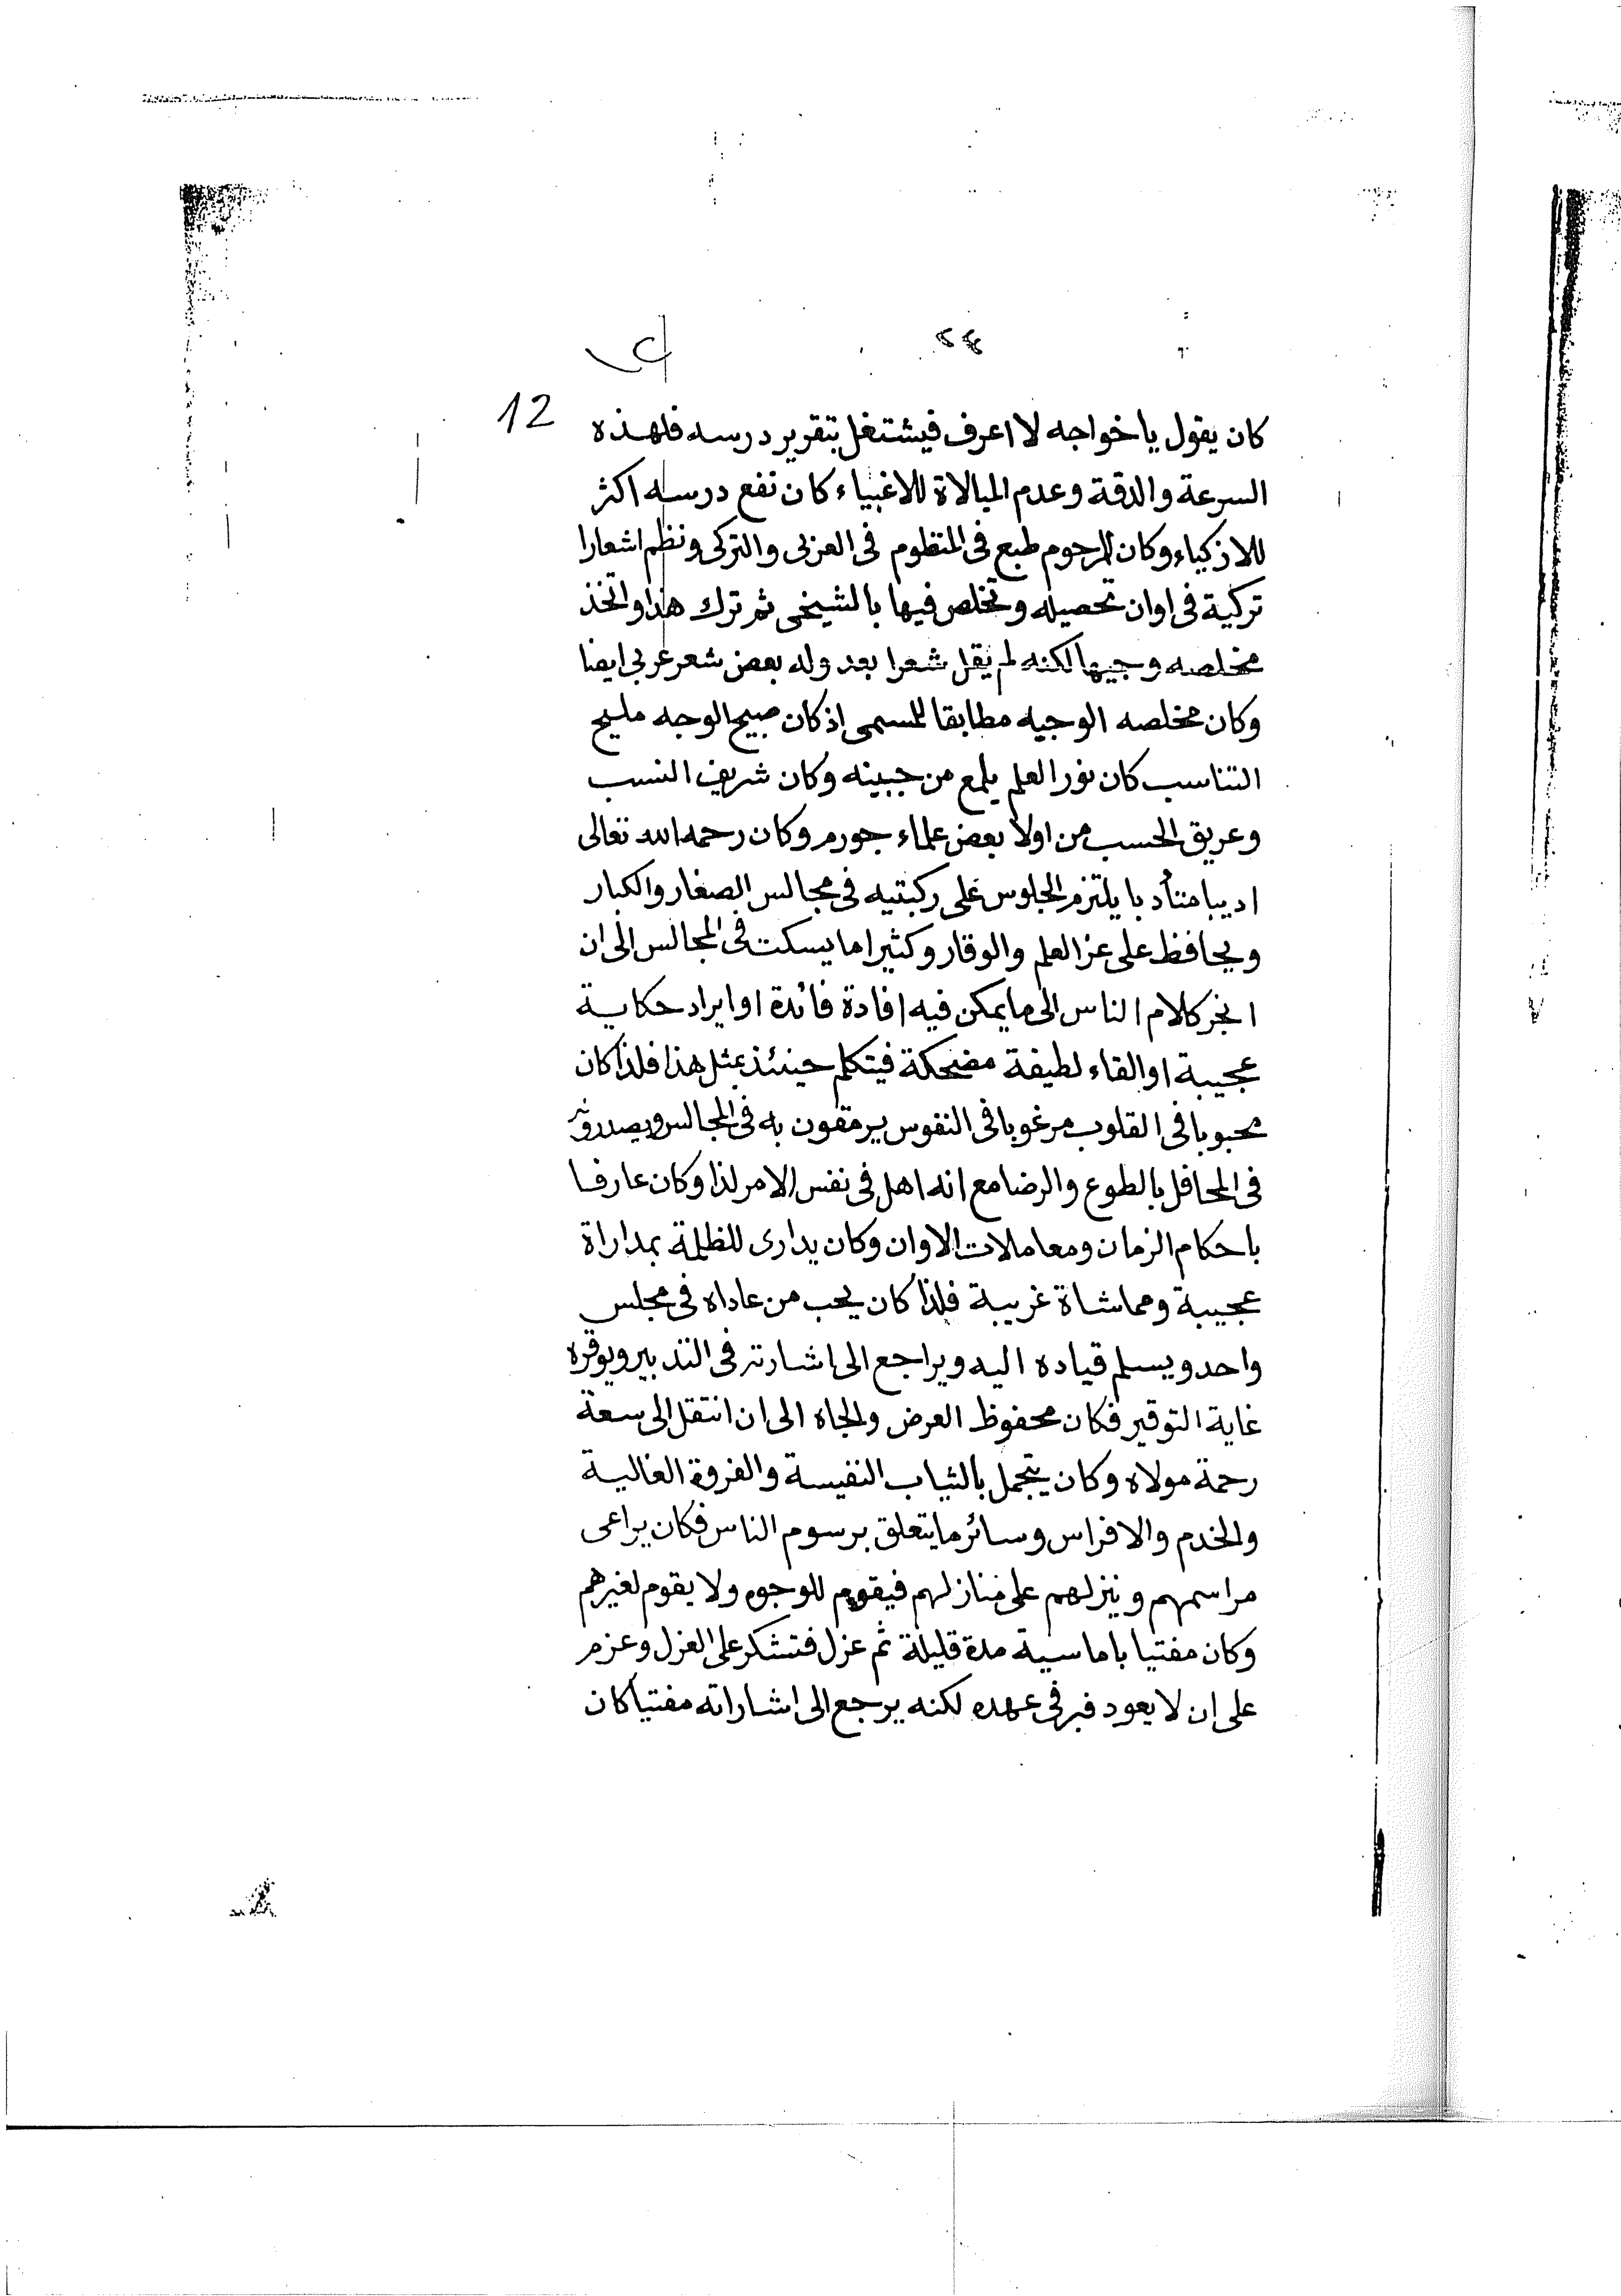 12
كان يقول يا خواجه لا اعرف فيشتغل بتقرير درسه فلهذه
السرعة والدقة وعدم المبالاة للاغبياء كان نفع درسه اكثر
للاذكياء وكان للمرحوم طبع فى المنظوم فى العربى والتركى ونظم اشعارا
تركية فى اوان تحصيله وتخلص فيها بالشيخى ثم ترك هذا واتخذ
مخلصه وجيها لكنه لم يقل شعرا بعد وله بعض شعر عربى ايضا
وكان مخلصه الوجيه مطابقا للمسمى اذ كان صبيح الوجه مليح
التناسب كان نور العلم يلمع من جبينه وكان شريف النسب
وعريق الحسب من اولاد بعض علماء جورم وكان رحمه الله تعالى
اديبا متأدبا يلتزم الجلوس على ركبتيه فى مجالس الصغار والكبار
ويحافظ على عز العلم والوقار وكثيرا ما يسكت فى المجالس الى ان
انجر كلام الناس الى ما يمكن فيه افادة فائدة او ايراد حكاية
عجيبة او القاء لطيفة مضحكة فيتكلم حينئذ بمثل هذا فلذا كان
محبوبا فى القلوب مرغوبا فى النفوس يرمقون به فى المجالس ويصدرونه
فى المحافل بالطوع والرضا مع انه اهل فى نفس الامر لذا وكان عارفا
باحكام الزمان ومعاملات الاوان وكان يدارى للظلمة بمداراة
عجيبة ومماشاة غريبة فلذا كان يحب من عاداه فى مجلس
واحد ويسلم قياده اليه ويراجع الى اشارته فى التدبير ويوقره
غاية التوقير فكان محفوظ العرض والجاه الى ان انتقل الى سعة
رحمة مولاه وكان يتجمل بالثياب النفيسة والفروة الغالية
والخدم والافراس وسائر ما يتعلق برسوم الناس فكان يراعى
مراسمهم وينزلهم على منازلهم فيقوم للوجوه ولا يقوم لغيرهم
وكان مفتيا باماسية مدة قليلة ثم عزل فتشكر على العزل وعزم
على ان لا يعود فبر فى عهده لكنه يرجع الى اشاراته مفتيا كان